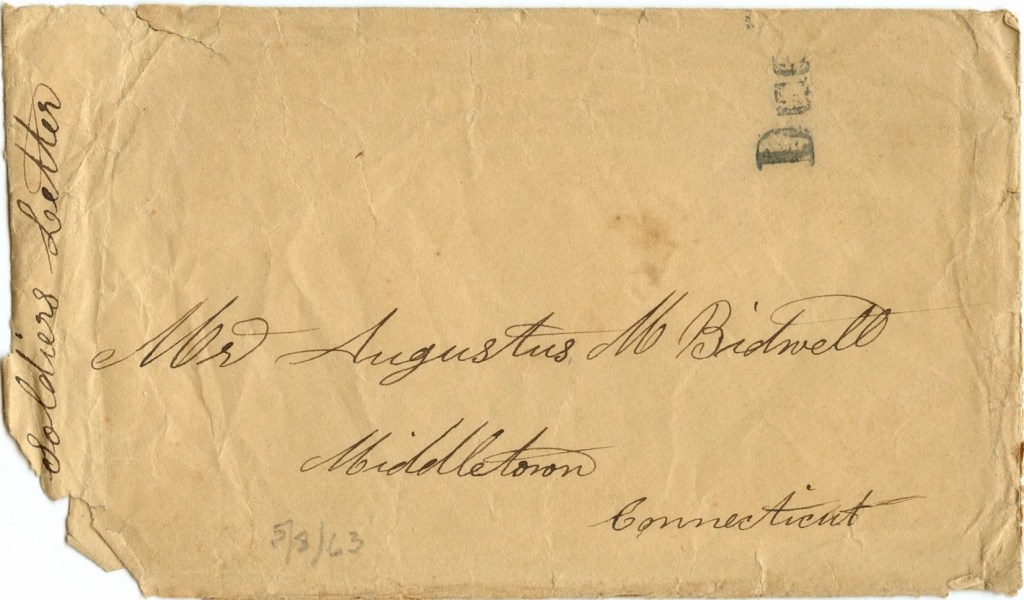 Soldiers Letter
Due
Mr Augustus M Bidwell
Middletown
Connecticut
5/8/63